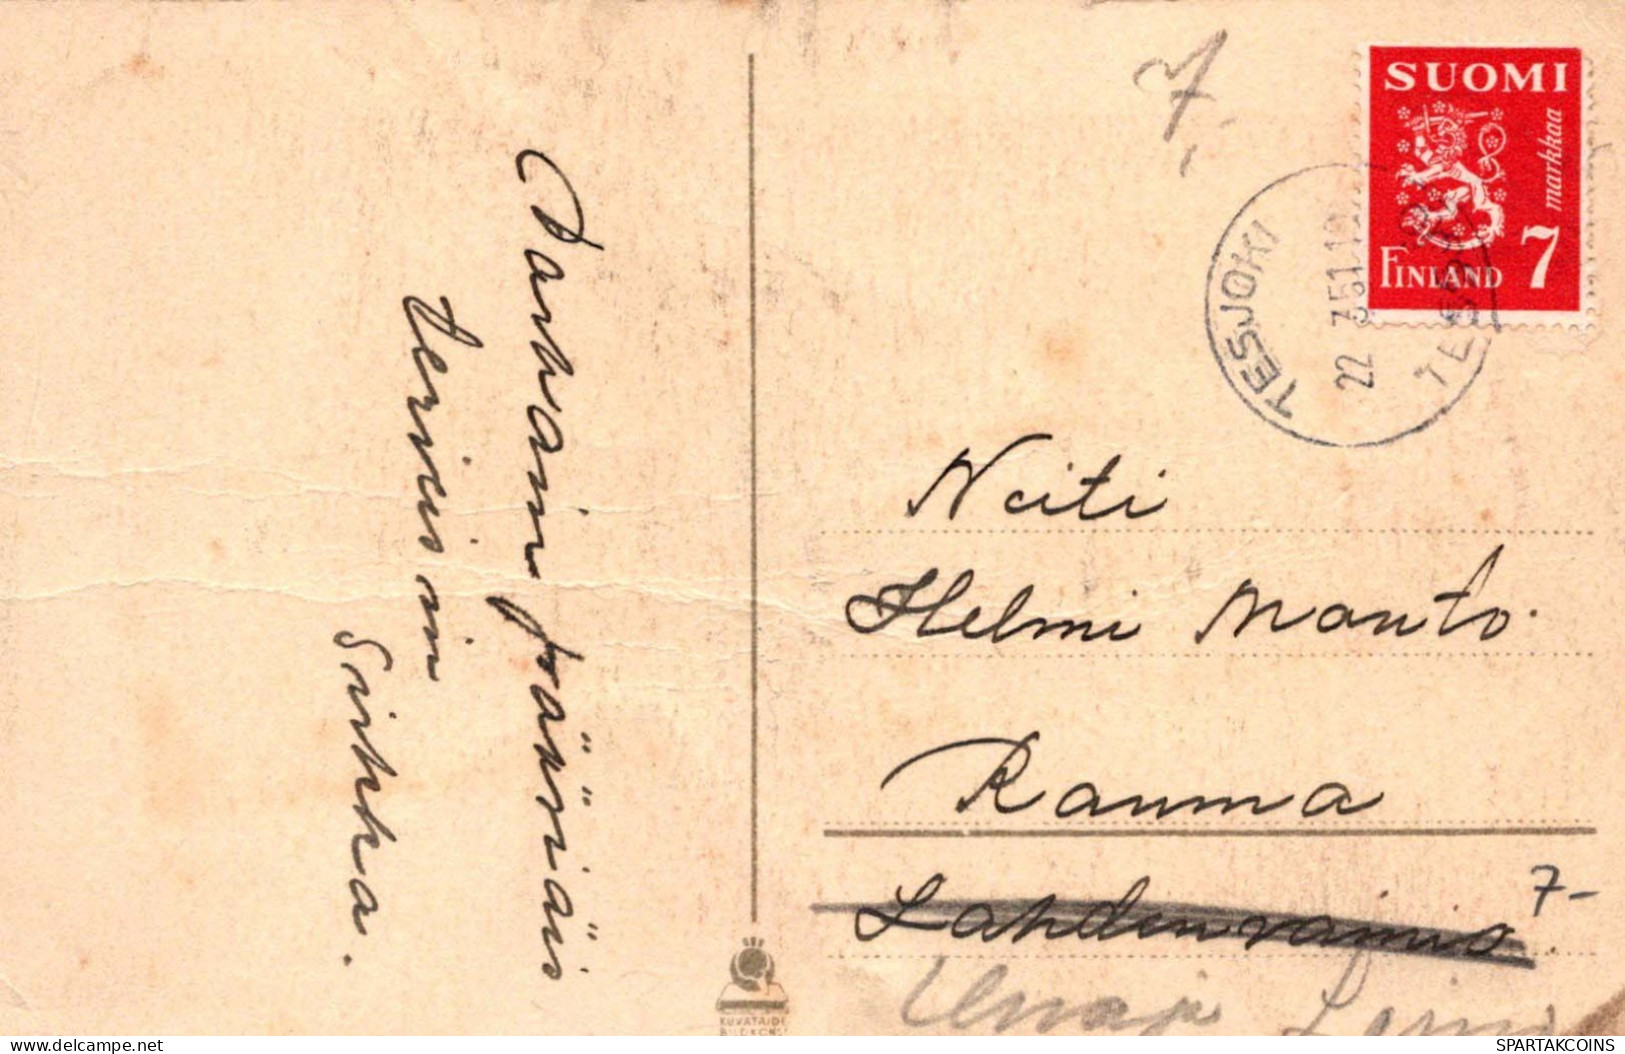 Parhain pääsiäis
terveisin
Sirkka.
7.
SUOMI
markkaa
FINLAND 7
TESJOKI
22. 3.51.19
TESJOKI
Neiti
Helmi Manto.
Rauma
Lahdenvainio
7-
KUVATAIDE
BILDKONST
delcampe.net
SPARTAKCOINS